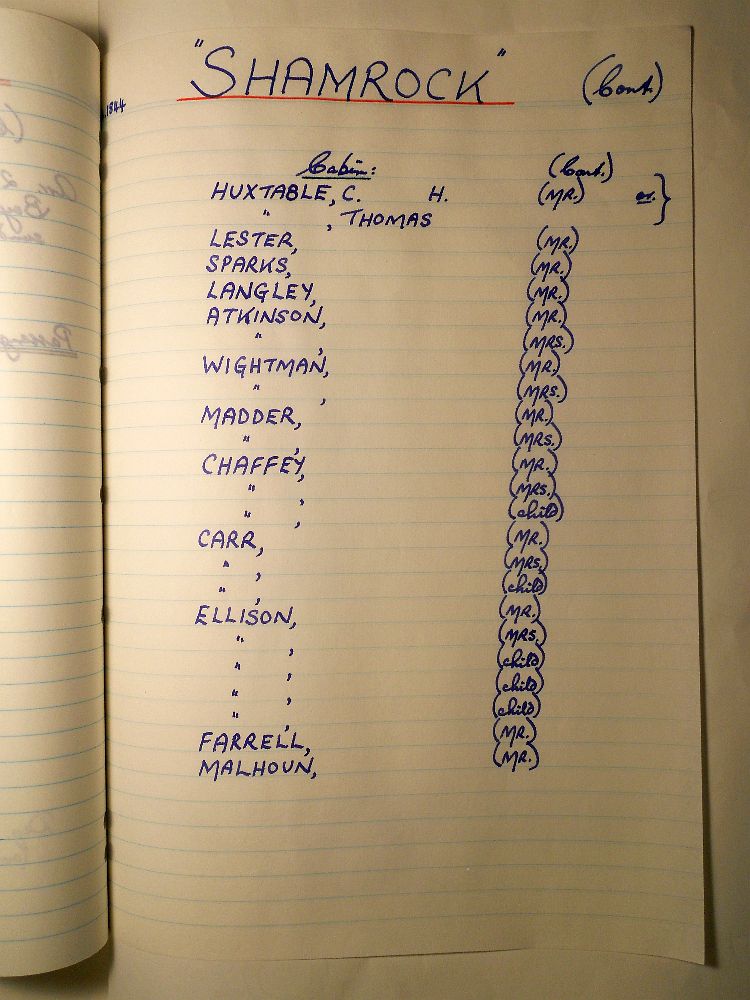 "SHAMROCK" (Cont.)
1844
Cabin: (Cont.)
HUXTABLE, C. H. (MR.) or. }
" , THOMAS
LESTER, (MR.)
SPARKS, (MR.)
LANGLEY, (MR.)
ATKINSON, (MR.)
" , (MRS.)
WIGHTMAN, (MR.)
" , (MRS.)
MADDER, (MR.)
" , (MRS.)
CHAFFEY, (MR.)
" , (MRS.)
" , (child)
CARR, (MR.)
" , (MRS.)
" , (child)
ELLISON, (MR.)
" , (MRS.)
" , (child)
" , (child)
" , (child)
FARRELL, (MR.)
MALHOUN, (MR.)